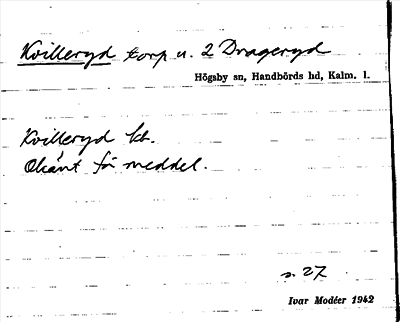 Kvilleryd torp u. 2 Drageryd
Högsby sn, Handbörds hd, Kalm. l.
Kvilleryd kb.
Okänt för meddel.
s. 27
Ivar Modéer 1942